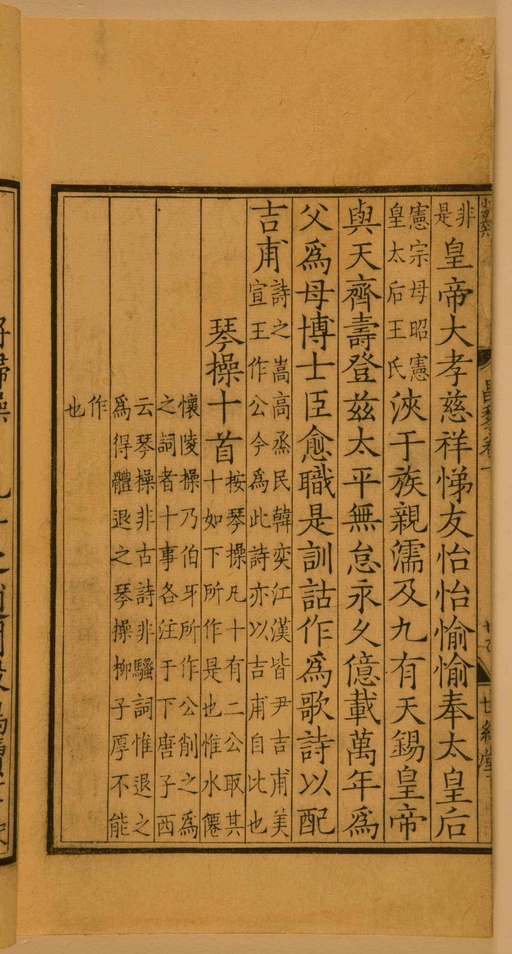 非
是
皇帝大孝慈祥悌友怡怡愉愉奉太皇后
憲宗母昭憲
皇太后王氏
浹于族親濡及九有天錫皇帝
與天齊壽登茲太平無怠永久億載萬年爲
父爲母博士臣愈職是訓詁作爲歌詩以配
吉甫
詩之嵩高烝民韓奕江漢皆尹吉甫美
宣王作公今爲此詩亦以吉甫自比也
琴操十首
按琴操凡十有二公取其
十如下所作是也惟水僊
懷陵操乃伯牙所作公削之爲
之詞者十事各注于下唐子西
云琴操非古詩非騷詞惟退之
爲得體退之琴操柳子厚不能
作
也
昌黎卷一
世綵堂